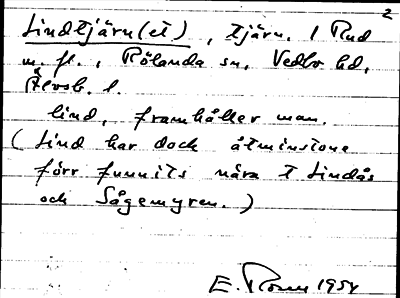 2
Lindtjärn(et), tjärn. 1 Rud
m. fl., Rölanda sn, Vedbo hd,
Älvsb. l.
lind, framhåller man.
(Lind har dock åtminstone
förr funnits nära t Lindås
och Sågemyren.)
E. 1954